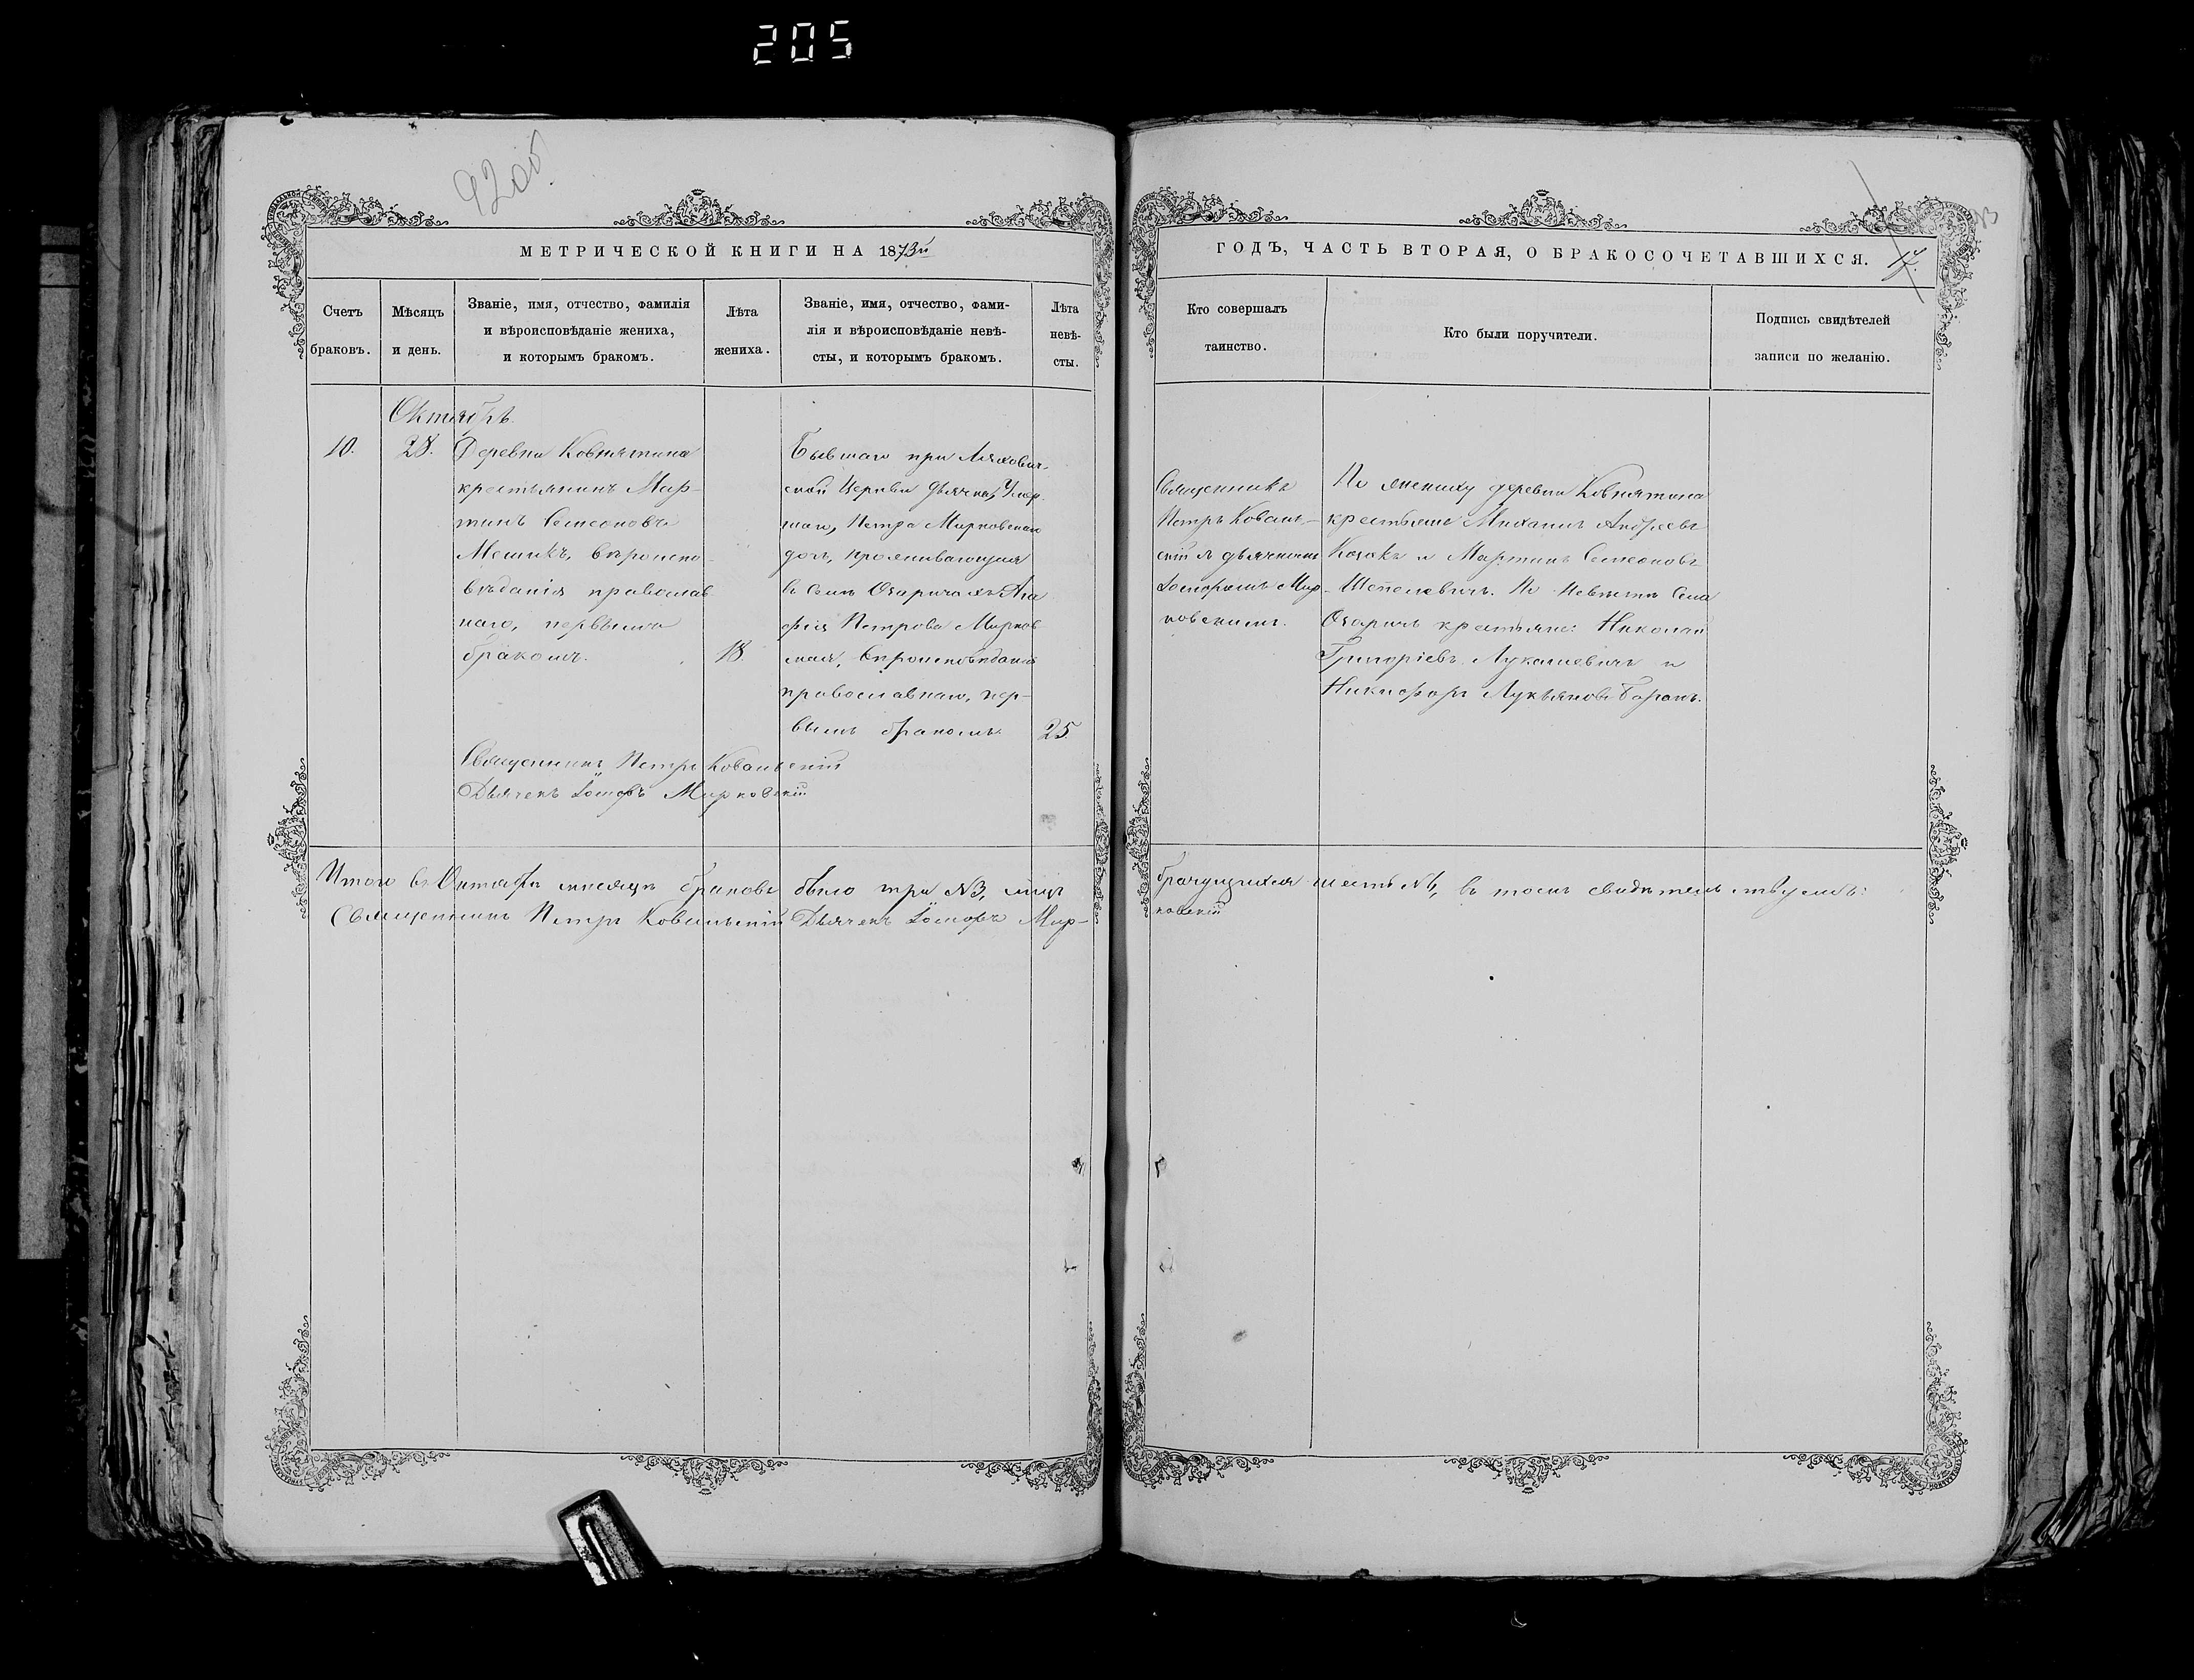 205
92 об.
93
МЕТРИЧЕСКОЙ КНИГИ НА 1873й
ГОДЪ, ЧАСТЬ ВТОРАЯ, О БРАКОСОЧЕТАВШИХСЯ.
17.
Счетъ
браковъ.
Мѣсяцъ
и день.
Званіе, имя, отчество, фамилія
и вѣроисповѣданіе жениха,
и которымъ бракомъ.
Лѣта
жениха.
Званіе, имя, отчество, фами-
лія и вѣроисповѣданіе невѣ-
сты, и которымъ бракомъ.
Лѣта
невѣ-
сты.
Кто совершалъ
таинство.
Кто были поручители.
Подпись свидѣтелей
записи по желанію.
Октябрь
10.
28.
Деревни Ковнятина
крестьянинъ Мар-
тинъ Семеоновъ
Мешикъ, вѣроиспо-
вѣданія православ-
наго, первымъ
бракомъ.
18.
Бывшаго при Ляхович-
ской Церкви Дьячка, Умер-
шаго, Петра Мирковскаго
дочь, проживающая
въ селѣ Озаричахъ Ага
фія Петрова Мирков
ская, вѣроисповѣданія
православнаго, пер-
вымъ бракомъ.
25.
Священникъ
Петръ Коваль-
скій съ дьячкомъ
Іосифомъ Мир-
ковскимъ.
По жениху деревни Ковнятина
крестьяне Михаилъ Андреевъ
Козакъ и Мартинъ Семеоновъ
Шепелевичъ. По Невѣстѣ Села
Озаричъ крестьяне: Николай
Григоріевъ Лукашевичъ и
Никифоръ Лукьяновъ Баранъ.
Священникъ Петръ Ковальскій
Дьячекъ Іосифъ Мирковскій
Итого въ Октябрѣ мѣсяцѣ браковъ было три №3, лицъ
брачущихся шесть №6, въ томъ свидѣтельствуемъ:
Священникъ Петръ Ковальскій Дьячекъ Іосифъ Мир-
ковскій